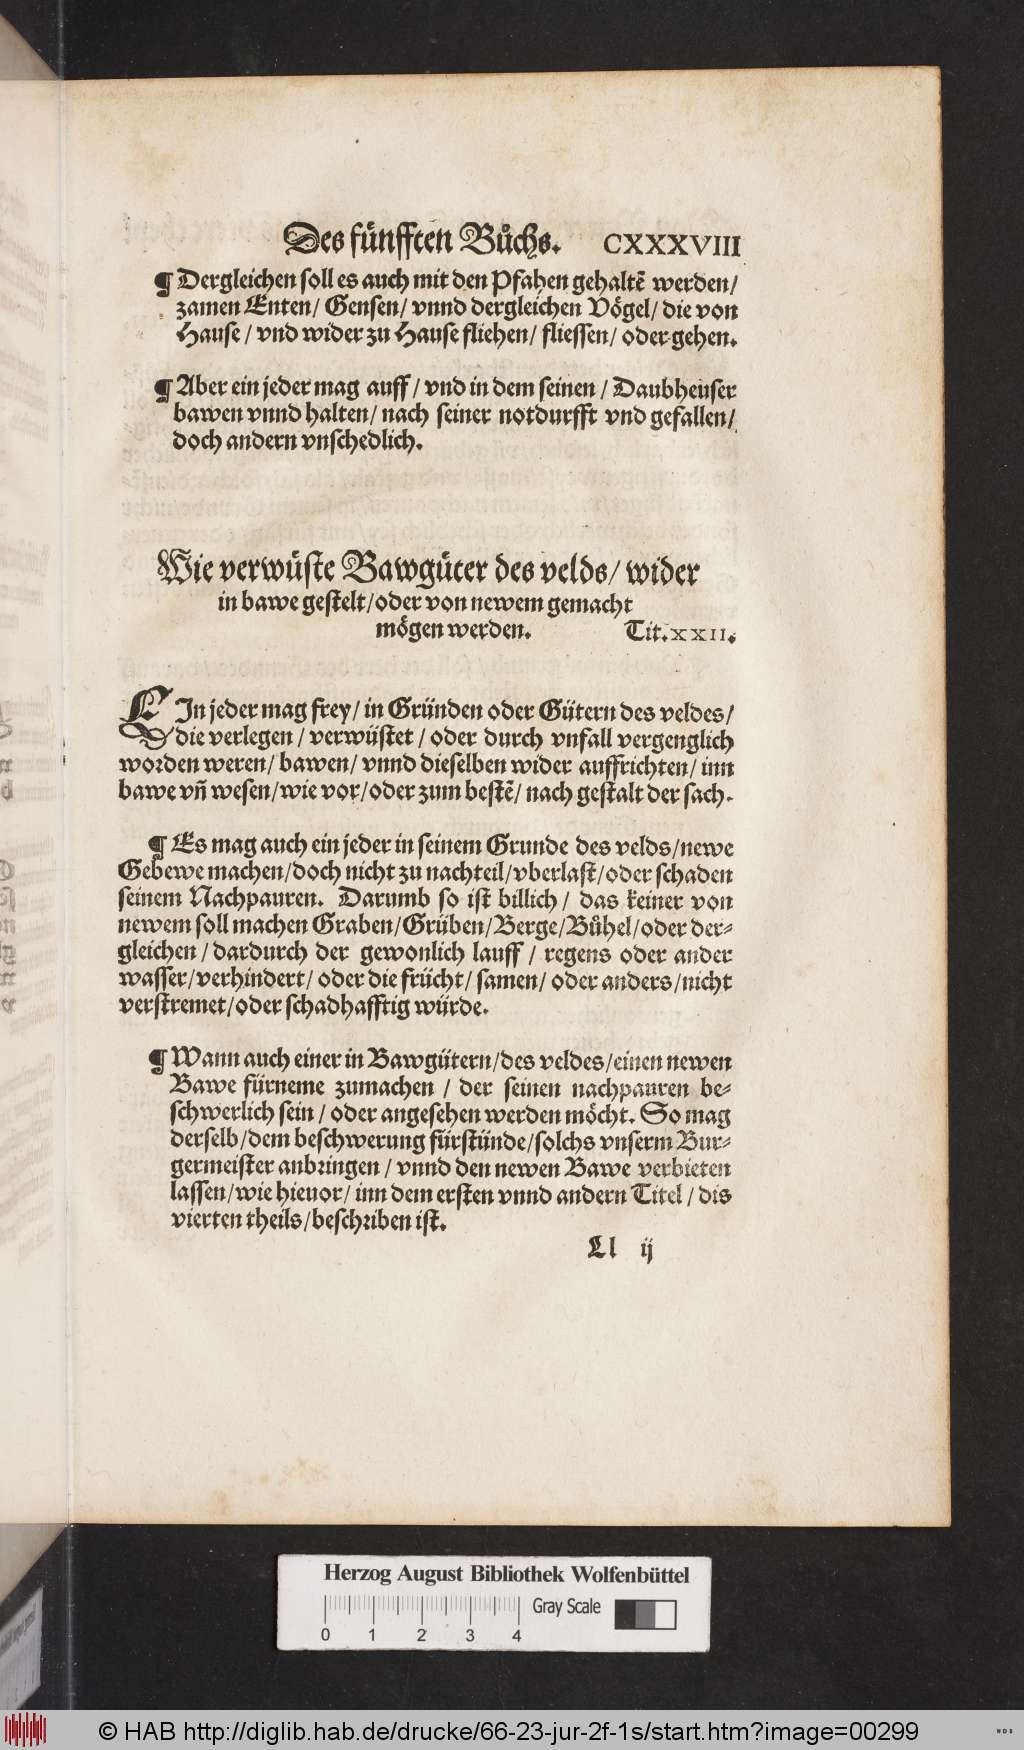 Des fünfften Bůchs. CXXXVIII
¶ Dergleichen soll es auch mit den Pfahen gehaltẽ werden/
zamen Enten/ Gensen/ vnnd dergleichen Vögel/ die von
Hause/ vnd wider zu Hause fliehen/ fliessen/ oder gehen.
¶ Aber ein jeder mag auff/ vnd in dem seinen/ Daubheuser
bawen vnnd halten/ nach seiner notdurfft vnd gefallen/
doch andern vnschedlich.
Wie verwüste Bawgüter des velds/ wider
in bawe gestelt/ oder von newem gemacht
mögen werden. Tit. XXII.
EIn jeder mag frey/ in Gründen oder Gütern des veldes/
die verlegen/ verwüstet/ oder durch vnfall vergenglich
worden weren/ bawen/ vnnd dieselben wider auffrichten/ inn
bawe vñ wesen/ wie vor/ oder zum bestẽ/ nach gestalt der sach.
¶ Es mag auch ein jeder in seinem Grunde des velds/ newe
Gebewe machen/ doch nicht zu nachteil/ vberlast/ oder schaden
seinem Nachpauren. Darumb so ist billich/ das keiner von
newem soll machen Graben/ Grüben/ Berge/ Bůhel/ oder der-
gleichen/ dardurch der gewonlich lauff/ regens oder ander
wasser/ verhindert/ oder die frücht/ samen/ oder anders/ nicht
verstremet/ oder schadhafftig würde.
¶ Wann auch einer in Bawgütern/ des veldes/ einen newen
Bawe fürneme zumachen/ der seinen nachpauren be-
schwerlich sein/ oder angesehen werden möcht. So mag
derselb/ dem beschwerung fürstünde/ solchs vnserm Bur-
germeister anbringen/ vnnd den newen Bawe verbieten
lassen/ wie hieuor/ inn dem ersten vnnd andern Titel/ dis
vierten theils/ beschriben ist.
Ll ij
Herzog August Bibliothek Wolfenbüttel
Gray Scale
0 1 2 3 4
© HAB http://diglib.hab.de/drucke/66-23-jur-2f-1s/start.htm?image=00299